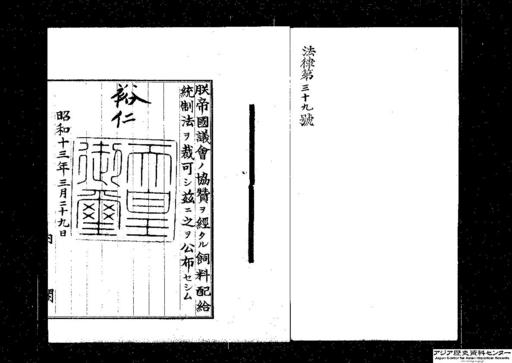 法律第三十九號
朕帝國議會ノ協贊ヲ經タル飼料配給
統制法ヲ裁可シ玆ニ之ヲ公布セシム
裕仁
天皇
御璽
昭和十三年三月二十九日
内閣
アジア歴史資料センター
Japan Center for Asian Historical Records